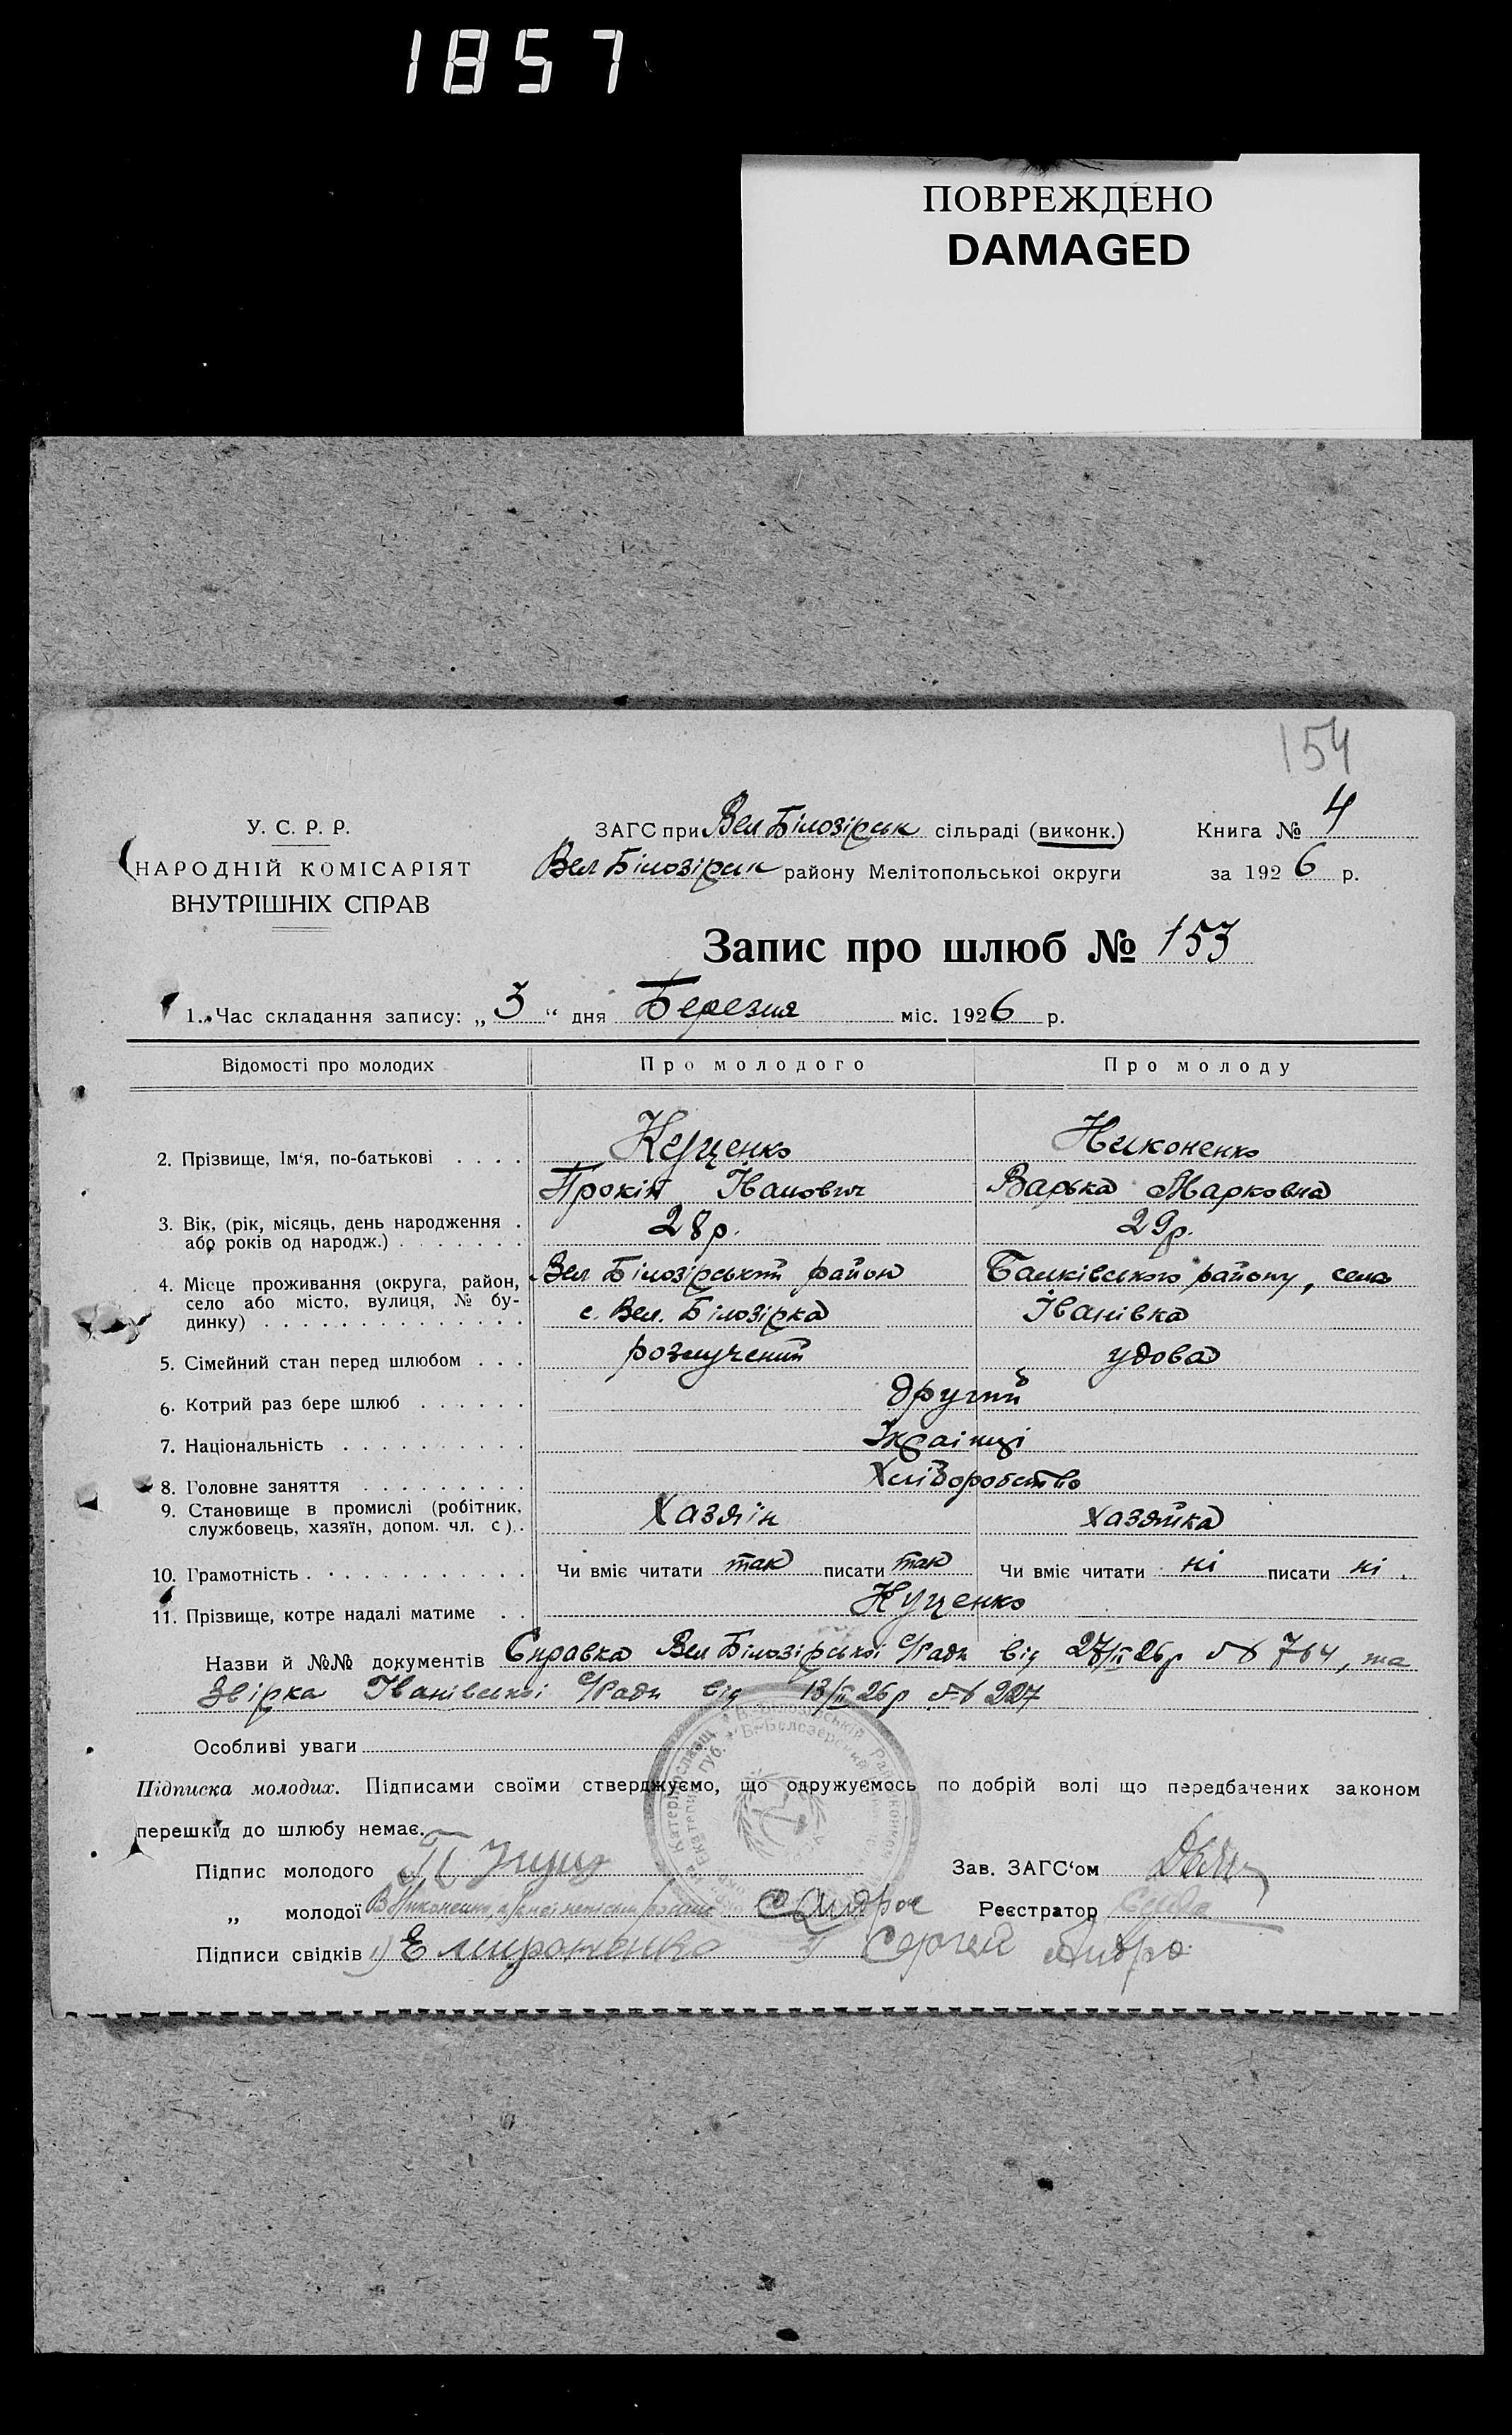 1857
ПОВРЕЖДЕНО
DAMAGED
154
У. С. Р. Р.
НАРОДНІЙ КОМІСАРІЯТ
ВНУТРІШНІХ СПРАВ
ЗАГС при Вел Білозірськ сільраді (виконк.)
Вел Білозірськ району Мелітопольськоі округи
Книга № 4
за 1926 р.
Запис про шлюб № 153
1. Час складання запису: „3“ дня Березня міс. 1926 р.
Відомості про молодих Про молодого Про молоду
2. Прізвище, Ім‘я, по-батькові . . . . Куценко Никоненко
Прокіп Іванович Варька Марковна
3. Вік, (рік, місяць, день народження . 28 р. 29 р.
або років од народж.) . . . . . . .
4. Місце проживання (округа, район, Вел Білозірський район Балківського району, село
село або місто, вулиця, № бу- с. Вел. Білозірка Іванівка
динку) . . . . . . . . . . . . . .
5. Сімейний стан перед шлюбом . . . розлучений удова
6. Котрий раз бере шлюб . . . . . . другий
7. Національність . . . . . . . . . . Українці
8. Головне заняття . . . . . . . . Хліборобство
9. Становище в промислі (робітник, Хазяін хазяйка
службовець, хазяїн, допом. чл. с).
10. Грамотність . . . . . . . . . . . Чи вміє читати так писати так Чи вміє читати ні писати ні.
11. Прізвище, котре надалі матиме . . Куценко
Назви й №№ документів Справка Вел Білозірськоі с/Ради від 27/II 26 р № 764, та
Звірка Іванівськоі с/Ради від 13/II 26 р № 227
Особливі уваги
Підписка молодих. Підписами своїми стверджуємо, що одружуємось по добрій волі що передбачених законом
перешкід до шлюбу немає.
Підпис молодого П Зав. ЗАГС‘ом
„ молодої В Никоненко, а Реєстратор
Підписи свідків 1) Е Мироненко 2 Сергей